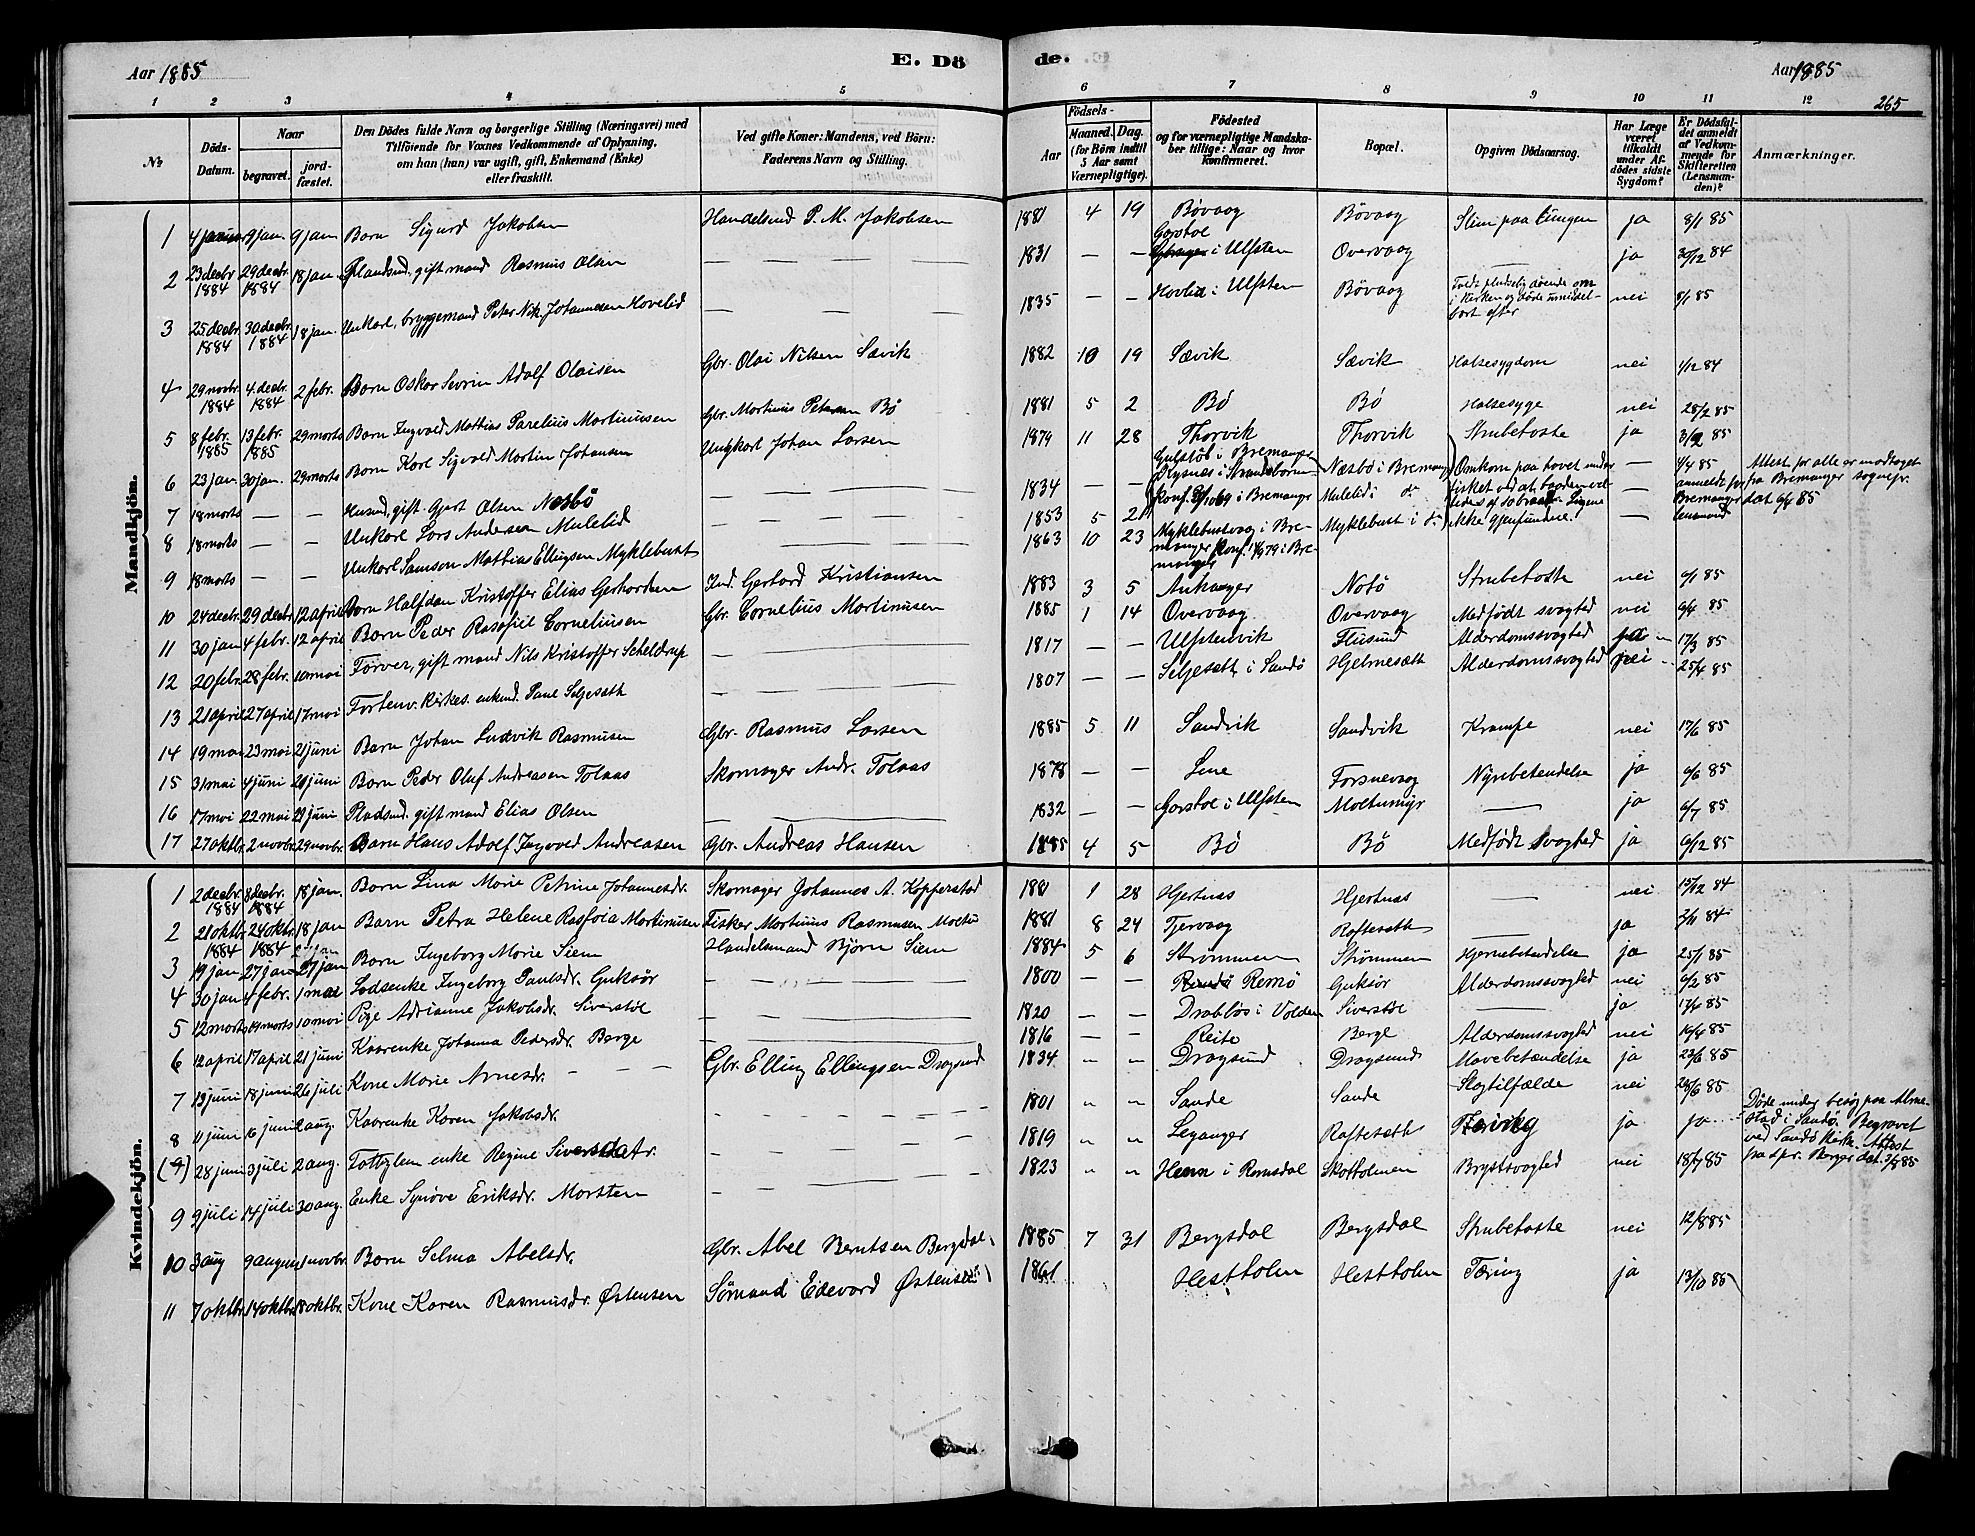 Aar 1885
E. Dö
de.
Aar 1885
265
1 2 3 4 5 6 7 8 9 10 11 12
No
Döds-Datum.
Naar
begravet.
jordfæstet.
Den Dödes fulde Navn og borgerlige Stilling (Næringsvei) med
Tilföiende for Voxnes Vedkommende af Oplysning,
om han (hun) var ugift, gift, Enkemand (Enke)
eller fraskilt.
Ved gifte Koner: Mandens, ved Börn:
Faderens Navn og Stilling.
Födsels-
Aar
Maaned.
Dag.
(for Börn indtil
5 Aar samt
Værnepligtige).
Födested
og for værnepligtige Mandska-
ber tillige: Naar og hvor
konfirmeret.
Bopæl.
Opgiven Dödsaarsag.
Har Læge
været
tilkaldt
under Af-
dödes sidste
Sygdom?
Er Dödsfal-
det anmeldt
af Vedkom-
mende for
Skifteretten
(Lensman-
den)?
Anmærkninger.
Mandkjön.
1 4 januar 9 jan. 9 jan Barn Sigurd Jakobsen Handelsmd P. M. Jakobsen 1881 4 19 Bövaag Bövaag Slim paa lungen ja 8/1 85
2 23 decbr 1884 29 decbr 1884 18 jan. gift mand Rasmus Olsen — — — — 1831 — — Gorstøl i Ulfsten Overvaag — ja 30/12 84
3 25 decbr. 1884 30 decbr. 1884 18 jan. Unkarl, bryggemand Peter Nik. Johannesen Hovelid — — — 1835 — — Hovlid i Ulfsten Bövaag Faldt pludselig døende om i kirken og døde umiddelbart efter nei 8/1 85
4 29 novbr. 1884 4 decbr. 1884 2 febr. Barn Oskar Severin Adolf Olaisen Gbr. Olai Nilsen Sævik 1882 10 19 Sævik Sævik Halsesygdom nei 1/12 84
5 8 febr. 1885 13 febr. 1885 29 marts Barn Ingvald Mathias Parelius Martinusen Gbr. Martinus Petersen Bö 1881 5 2 Bö Bö Halsesyge nei 28/2 85
6 23 jan 30 jan. 29 marts Barn Karl Sigvald Martin Johansen Ungkarl Johan Larsen 1879 11 28 Thorvik Thorvik Strubehoste ja 3/2 85
7 18 marts — — Husmd, gift Gjert Olsen Næsbö — — — 1834 — — Gulstöl i Bremanger Næsbö i Bremang Omkom paa havet under fisket ved at baaden væltedes af sobraat. Ligene ikke gjenfundne. — 1/4 85 anmeldt for Bremanger lensmand Attest for alle er modtaget fra Bremanger sognepr. dat. 9/4 85
8 18 marts — — Unkarl Lars Andersen Mulelid — — — 1853 5 21 Konf. 3/10 69 i Bremanger Mulelid i do —
9 18 marts — — Unkarl Samson Mathias Ellingsen Myklebust — — — 1863 10 23 Myklebustvaag i Bremanger Konf. 14/9 79 i Bremanger Myklebust i do —
10 24 decbr. 29 decbr. 12 april Barn Halfdan Kristoffer Elias Gerhardsen Ind. Gerhard Kristiansen 1883 3 5 Nøtö Strubehoste nei 6/1 85
11 30 jan 4 febr. 12 april Barn Peder Rasofiel Corneliusen Gbr. Cornelius Martinusen 1885 1 14 Overvaag Overvaag Medfödt svaghed nei 9/4 85
12 20 febr. 28 febr. 10 mai Farver, gift mand Nils Kristoffer Scheldrup — — — 1817 — — Ulfstenvik Flusund Alderdomssvaghed ja 17/3 85
13 21 april 27 april 17 mai enkemd. Paul Seljesæth — — — 1807 — — Seljesæth i Sandö Hjelmesæth Alderdomssvaghed nei 25/4 85
14 19 mai 23 mai 21 juni Barn Johan Ludvik Rasmusen Gbr. Rasmus Larsen 1885 5 11 Sandvik Sandvik Krampe nei 17/6 85
15 31 mai 4 juni 21 juni Barn Peder Oluf Andreasen Tolaas Skomager Andr. Tolaas 1878 — — Forsnevaag Nyrebetendelse ja 6/6 85
16 17 mai 22 mai 21 juni Pladsmd. gift mand Elias Olsen — — — 1832 — — Gorstøl i Ulfsten Moltumyr — ja 6/7 85
17 27 oktbr. 2 novbr. 29 novbr. Barn Hans Adolf Ingvad Andreasen Gbr. Andreas Hansen 1885 4 5 Bö Bö Medfödt svaghed ja 6/12 85
Kvindekjön.
1 2 decbr. 1884 8 decbr. 1884 18 jan. Barn Lina Marie Petrine Johannesdr. Skomager Johannes A. Kopperstad 1881 1 28 Hjertnæs Hjertnæs — nei 15/12 84
2 21 oktbr. 1884 24 oktbr. 1884 18 jan Barn Petra Helene Rasfoia Martinusen Fisker Martinus Rasmusen Moltu 1881 8 24 Tjervaag Raftesæth — ja 2/11 84
3 19 jan 27 jan 27 jan Barn Ingeborg Marie Siem Handelsmand Björn Siem 1884 5 6 Strømmen Strømmen Hjernebetendelse ja 25/1 85
4 30 jan 4 febr. 1 mai Lodsenke Ingeborg Paulsdr. Gurskör — — — 1800 — — Remö Gurskör Alderdomssvaghed nei 6/2 85
5 12 marts 19 marts 10 mai Pige Adrianne Jakobsdr. Siverstøl — — — 1820 — — Drabløs i Volden Siverstøl — ja 17/4 85
6 12 april 17 april 21 juni Kaarenke Johanna Pedersdr. Berge — — — 1816 — — Reite Berge Alderdomssvaghed nei 19/4 85
7 13 juni 18 juni 26 juli Kone Marie Arnesdr. — — — Gbr. Elling Ellingsen Dragsund 1834 — — Dragsund Dragsund Mavebetændelse ja 23/6 85
8 11 juni 16 juni 2 aug. Kaarenke Karen Jakobsdr. — — — 1801 " " Sande Sande Slagtilfælde nei 28/6 85
(9) 28 juni 3 juli 2 aug. Fattiglem enke Regine Siversdatr. — — — 1819 " " Leganger Raftesæth ja ja Döde under besøg paa Almestad i Sandö. Begravet ved Sandö kirke. Attest fra spr. Berger dat. 3/8 85
9 9 juli 14 juli 30 aug. Enke Synöve Eriksdr. Marsten — — — 1823 " " i Romsdal Skotholmen Brystsvaghed nei 18/7 85
10 3 aug 9 august 1 novbr. Barn Selma Abelsdr. Gbr. Abel Berntsen Bergsdal 1885 7 31 Bergsdal Bergsdal Strubehoste nei 12/8 85
11 7 oktbr. 14 oktbr. 18 oktbr. Kone Karen Rasmusdr. Østensen Sömand Edevard Østensen 1861 Hestholm Hestholm Tæring ja 13/10 85